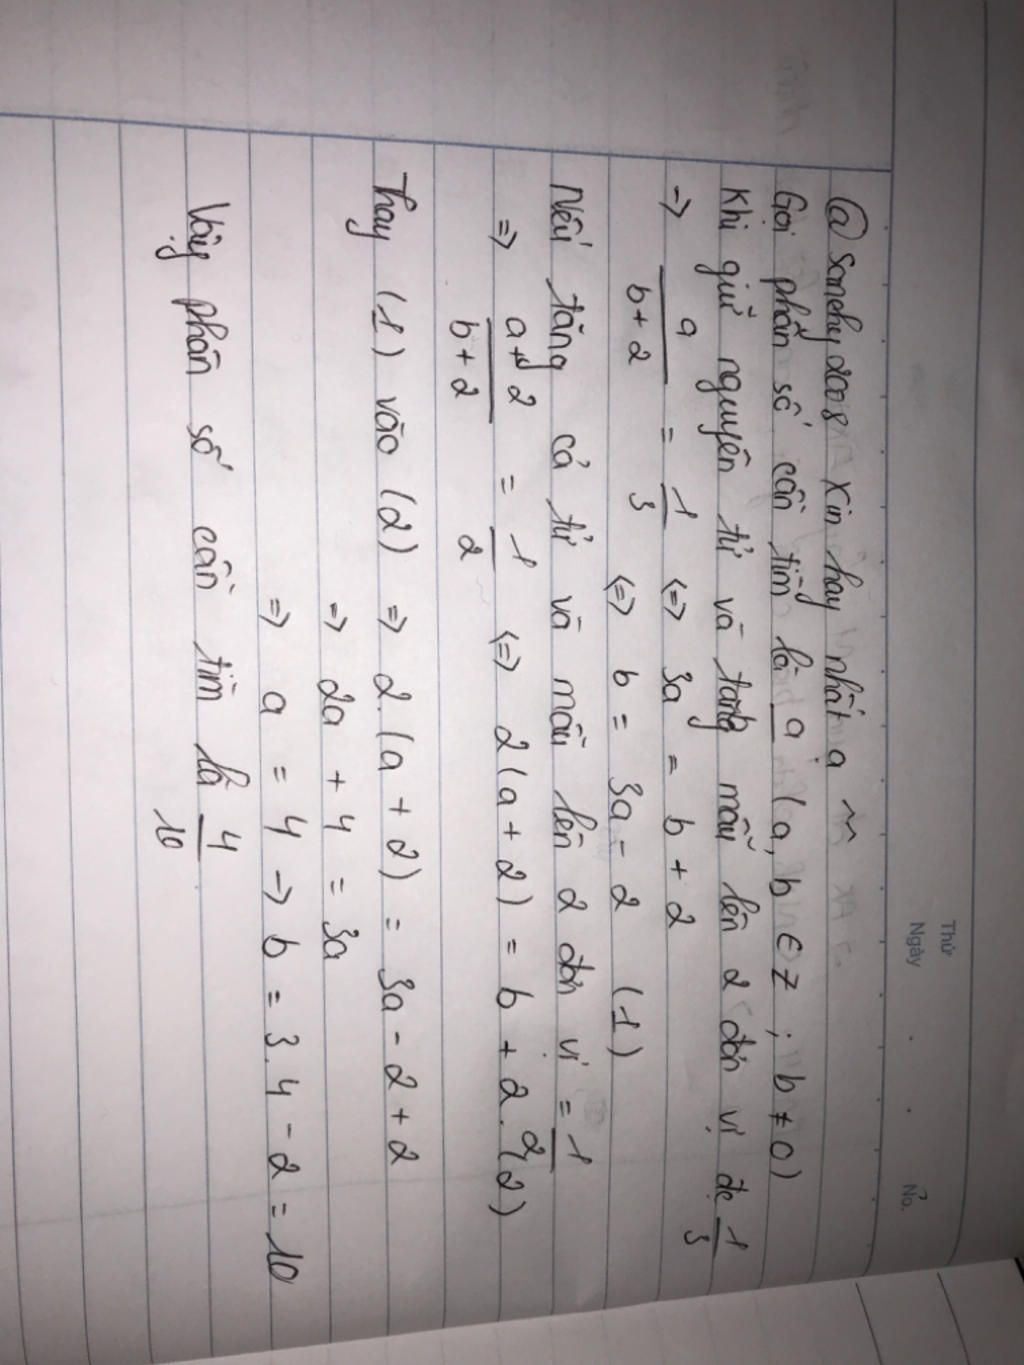 Thứ
Ngày
No.
@ somehy2008 xin hay nhất ạ ~
Gọi phân số cần tìm là a/b (a, b ∈ Z ; b ≠ 0)
Khi giữ nguyên tử và tăng mẫu lên 2 đơn vị đc 1/3
→ a/(b+2) = 1/3 <=> 3a = b + 2
<=> b = 3a - 2 (1)
Nếu tăng cả tử và mẫu lên 2 đơn vị = 1/2
=> (a+2)/(b+2) = 1/2 <=> 2(a+2) = b + 2 (2)
Thay (1) vào (2) => 2.(a+2) = 3a - 2 + 2
=> 2a + 4 = 3a
=> a = 4 → b = 3.4 - 2 = 10
Vậy phân số cần tìm là 4/10